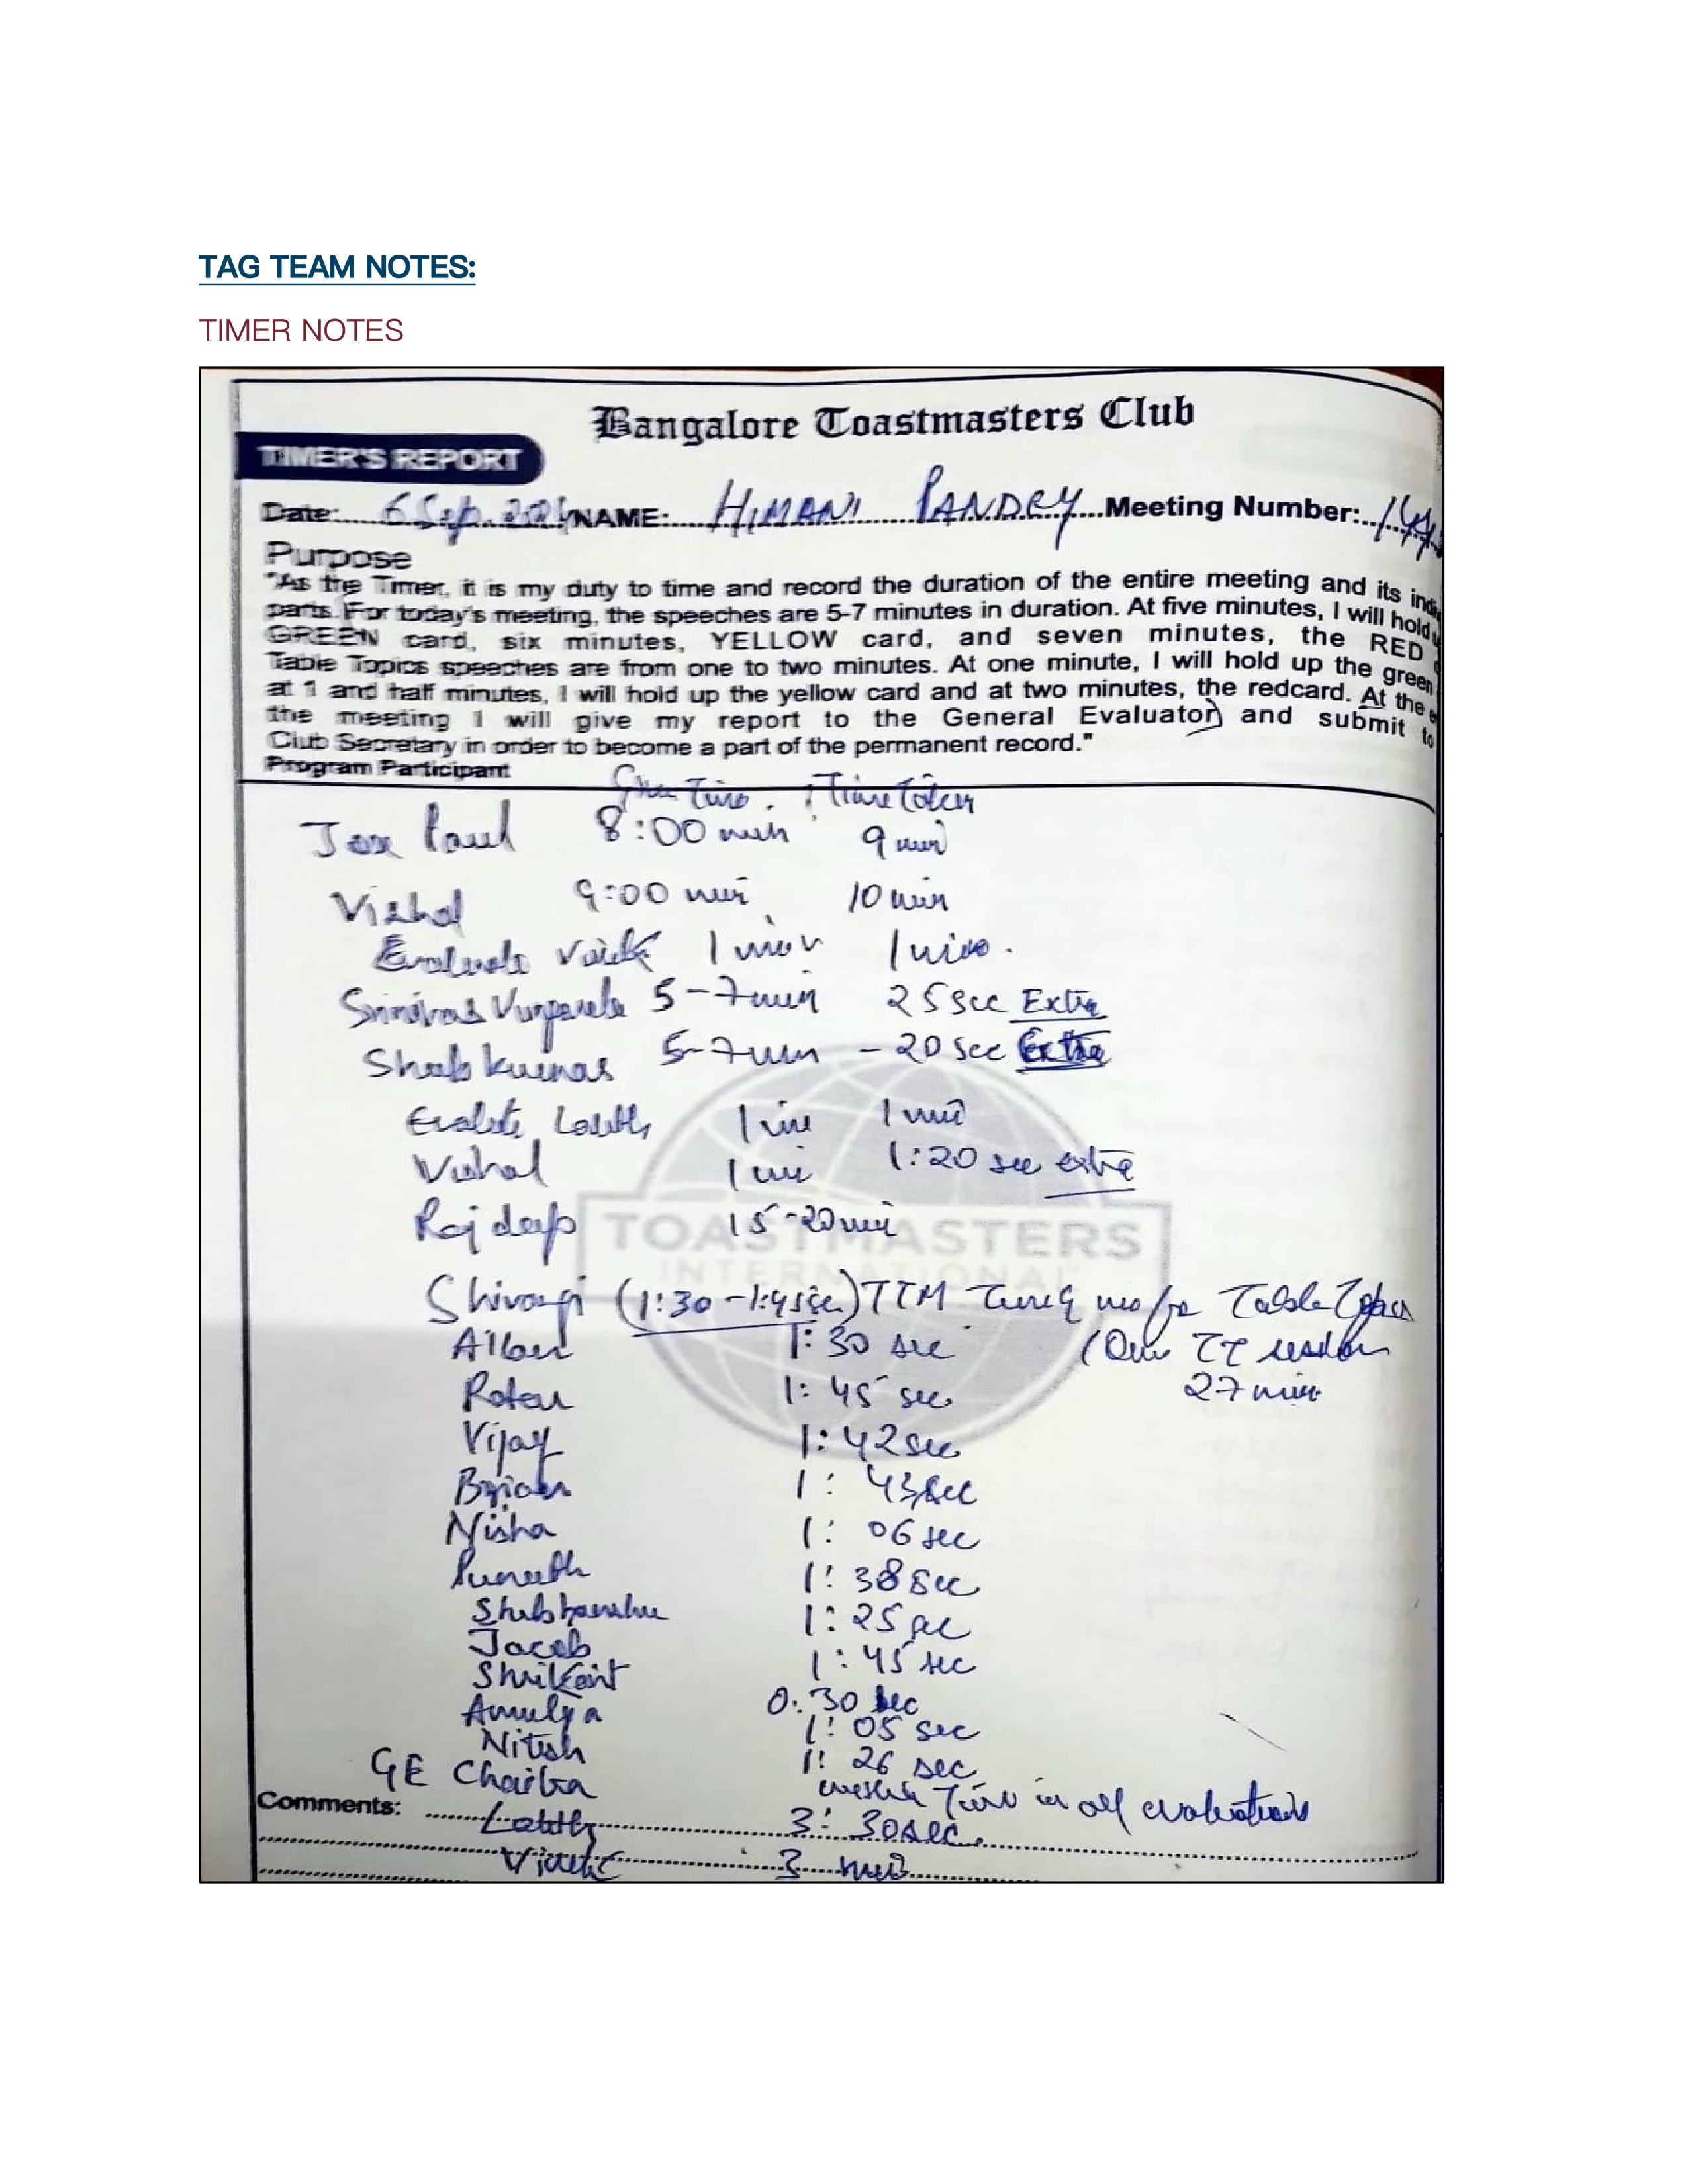 TAG TEAM NOTES:
TIMER NOTES
Bangalore Toastmasters Club
TIMER'S REPORT
Date: 6 Sep. NAME: HIMANI PANDEY Meeting Number:
Purpose
"As the Timer, it is my duty to time and record the duration of the entire meeting and its
parts. For today's meeting, the speeches are 5-7 minutes in duration. At five minutes, I will hold
GREEN card, six minutes, YELLOW card, and seven minutes, the RED
Table Topics speeches are from one to two minutes. At one minute, I will hold up the green
at 1 and half minutes, I will hold up the yellow card and at two minutes, the redcard. At the
the meeting I will give my report to the General Evaluator) and submit to
Club Secretary in order to become a part of the permanent record."
Program Participant
Time Taken
Paul 8:00 min 9 min
Vishal 9:00 min 10 min
1 min 1 min.
Srinivas 5-7 min 25 sec Extra
5-7 min - 20 sec Extra
1 min 1 min
Vishal 1 min 1:20 sec extra
Rajdeep 15-20 min
TOASTMASTERS
INTERNATIONAL
Shivangi (1:30 - 1:45 sec) TTM Table Topics
Allan 1:30 sec (One TT session
1:45 sec 27 min
Vijay 1:42 sec
Brian 1:43 sec
Nisha 1:06 sec
Puneeth 1:38 sec
Shubhanshu 1:25 sec
Jacob 1:45 sec
Shrikant 0:30 sec
Amulya 1:05 sec
Nitish 1:26 sec
GE Chaitra Time in all evaluations
Comments: 3:30 sec.
3 min